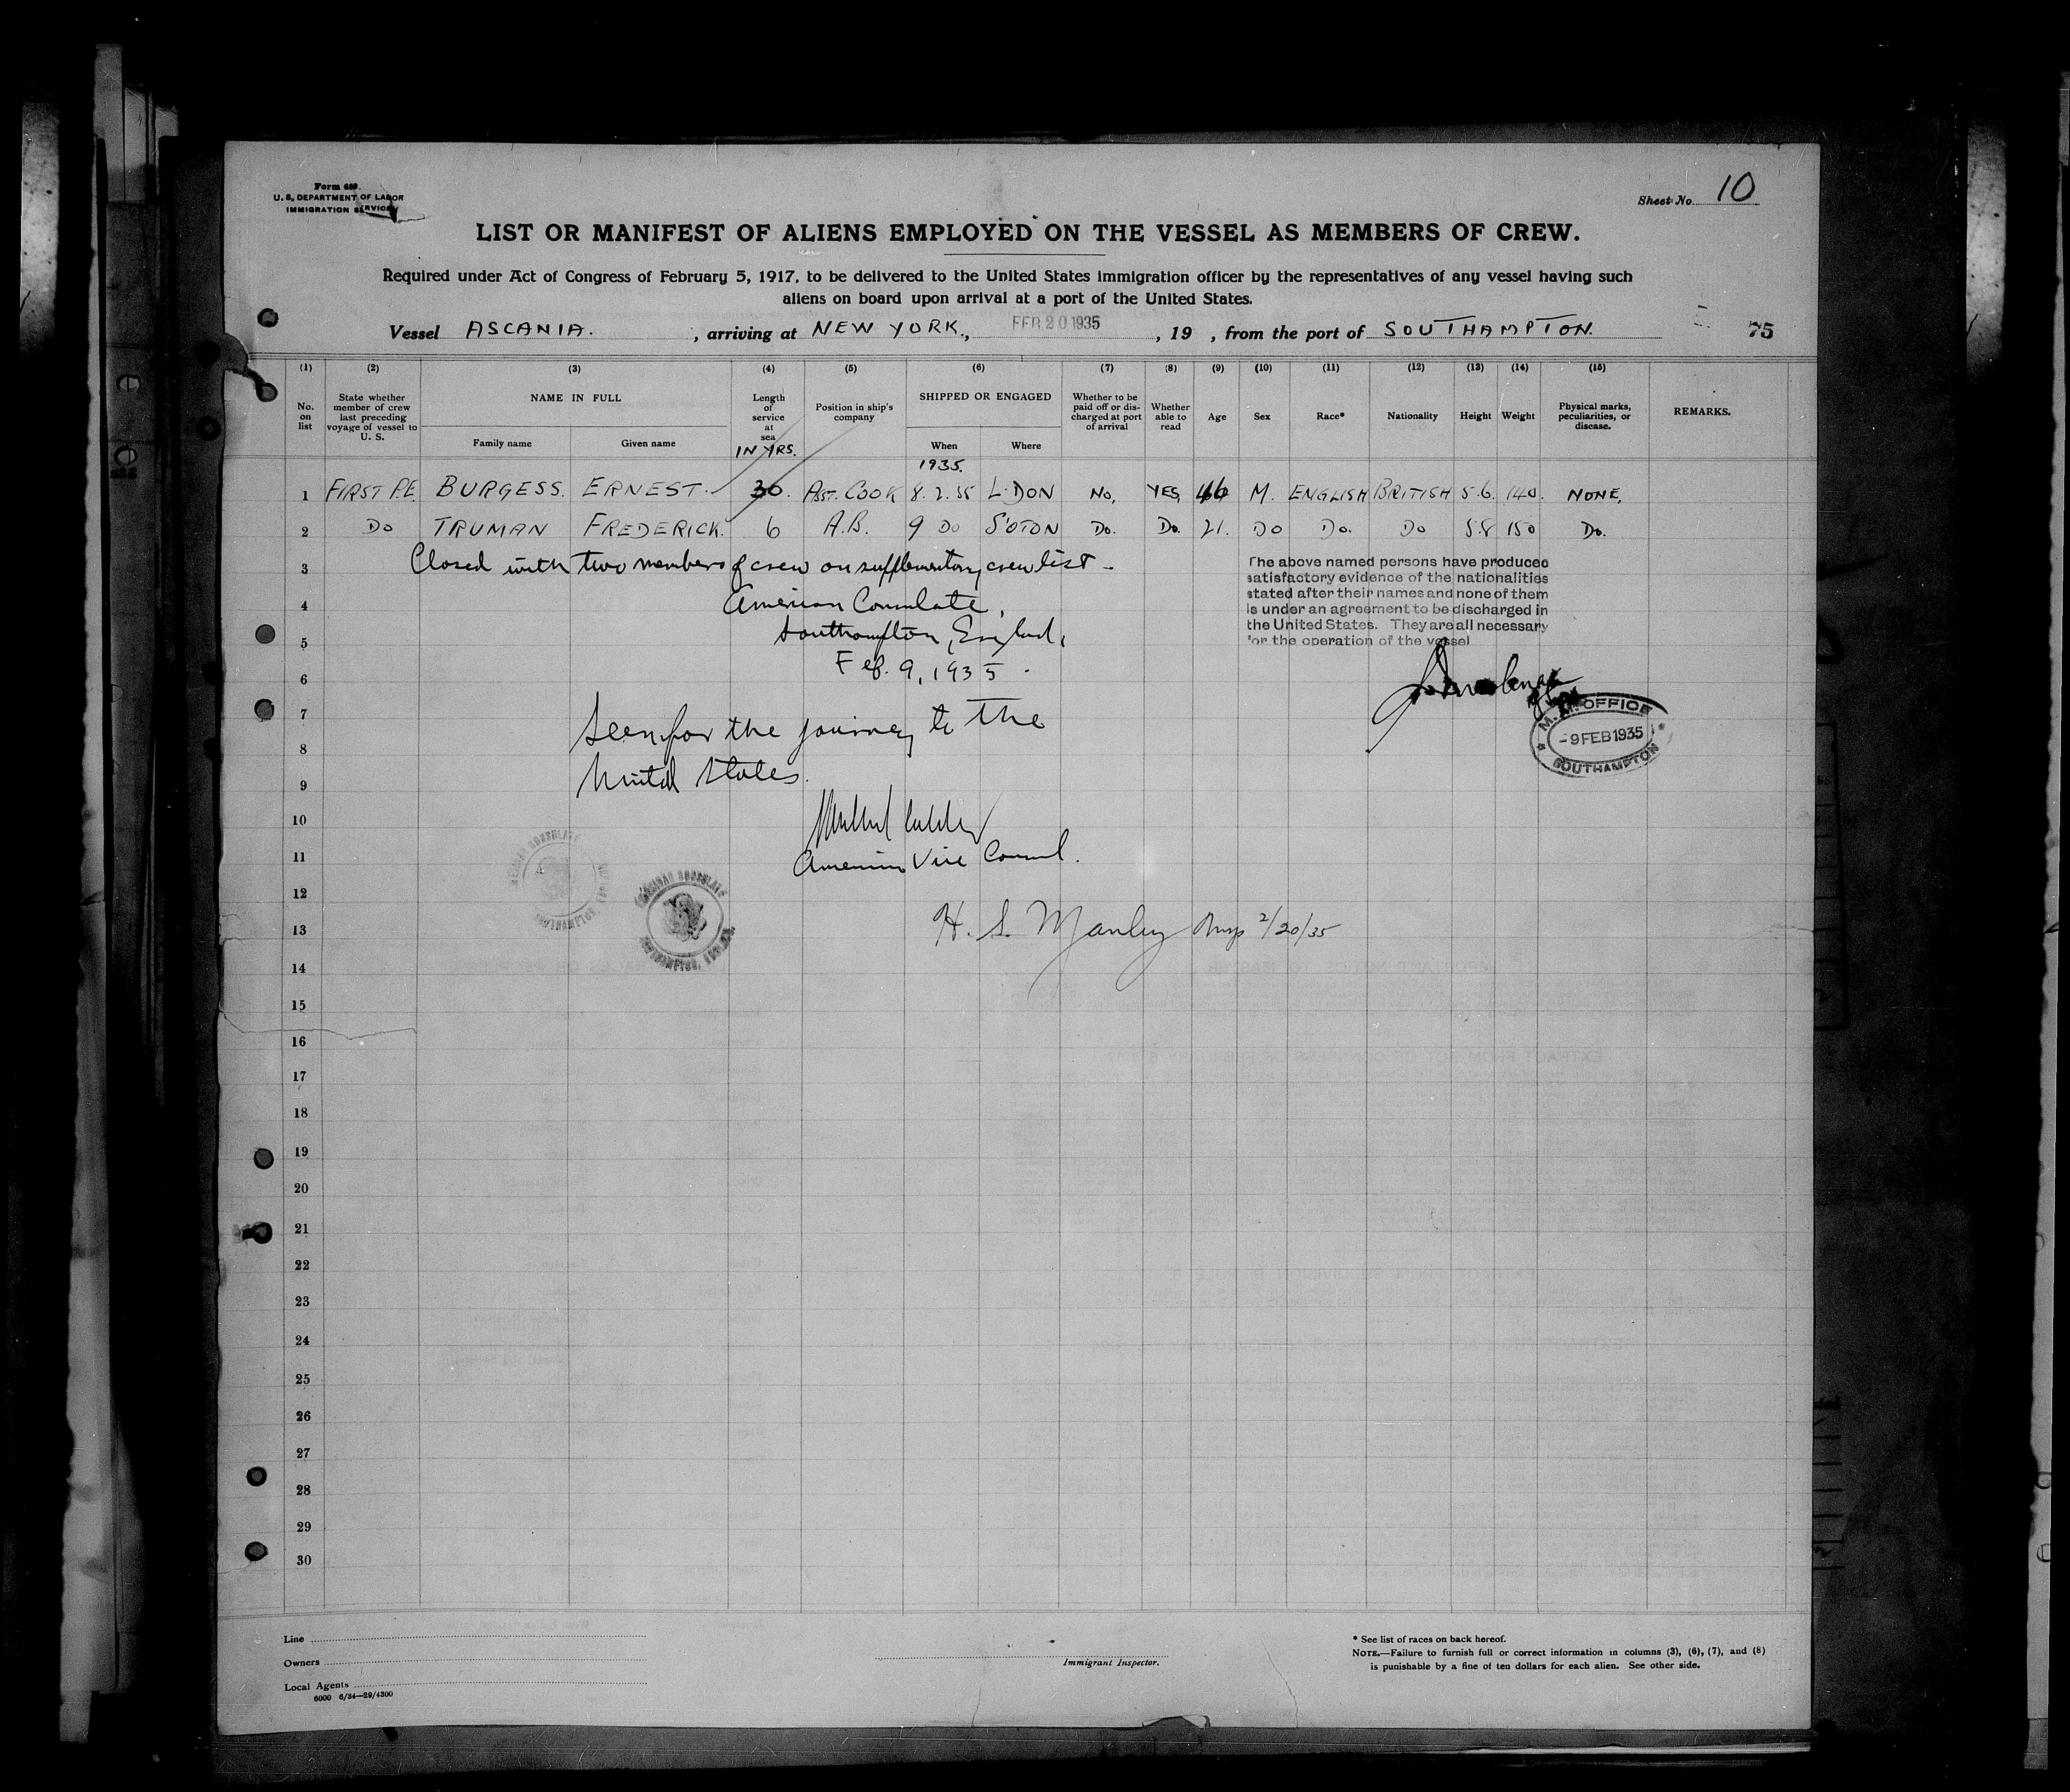 Form 689.
U. S. DEPARTMENT OF LABOR
IMMIGRATION SERVICE
Sheet No. 10
LIST OR MANIFEST OF ALIENS EMPLOYED ON THE VESSEL AS MEMBERS OF CREW.
Required under Act of Congress of February 5, 1917, to be delivered to the United States immigration officer by the representatives of any vessel having such
aliens on board upon arrival at a port of the United States.
Vessel ASCANIA. , arriving at NEW YORK., FEB 20 1935 , 19 , from the port of SOUTHAMPTON. 75
(1) (2) (3) (4) (5) (6) (7) (8) (9) (10) (11) (12) (13) (14) (15)
No. on list
State whether member of crew last preceding voyage of vessel to U. S.
NAME IN FULL
Family name Given name
Length of service at sea
IN YRS.
Position in ship's company
SHIPPED OR ENGAGED
When Where
Whether to be paid off or discharged at port of arrival
Whether able to read
Age
Sex
Race*
Nationality
Height
Weight
Physical marks, peculiarities, or disease.
REMARKS.
1935.
1 FIRST P.E. BURGESS. ERNEST. 30. ASST. COOK 8.2.35 L'DON No, YES, 46 M. ENGLISH BRITISH 5.6. 140. NONE,
2 Do TRUMAN FREDERICK. 6 A.B. 9 Do S'OTON Do. Do. 21. Do Do. Do 5.8 150 Do.
3 Closed with two members of crew on supplementary crew list -
4 American Consulate,
5 Southampton, England,
6 Feb. 9, 1935.
The above named persons have produced
satisfactory evidence of the nationalities
stated after their names and none of them
is under an agreement to be discharged in
the United States. They are all necessary
for the operation of the vessel
M. M. OFFICE
-9 FEB 1935
SOUTHAMPTON
7 Seen for the journey to the
8
9 United States.
10
11 American Vice Consul.
AMERICAN CONSULATE
SOUTHAMPTON, ENGLAND
AMERICAN CONSULATE
SOUTHAMPTON, ENGLAND
12
13 H. S. Manley Insp 2/20/35
14
15
16
17
18
19
20
21
22
23
24
25
26
27
28
29
30
Line
Owners
Local Agents
6000 6/34—29/4300
Immigrant Inspector.
* See list of races on back hereof.
NOTE.—Failure to furnish full or correct information in columns (3), (6), (7), and (8)
is punishable by a fine of ten dollars for each alien. See other side.